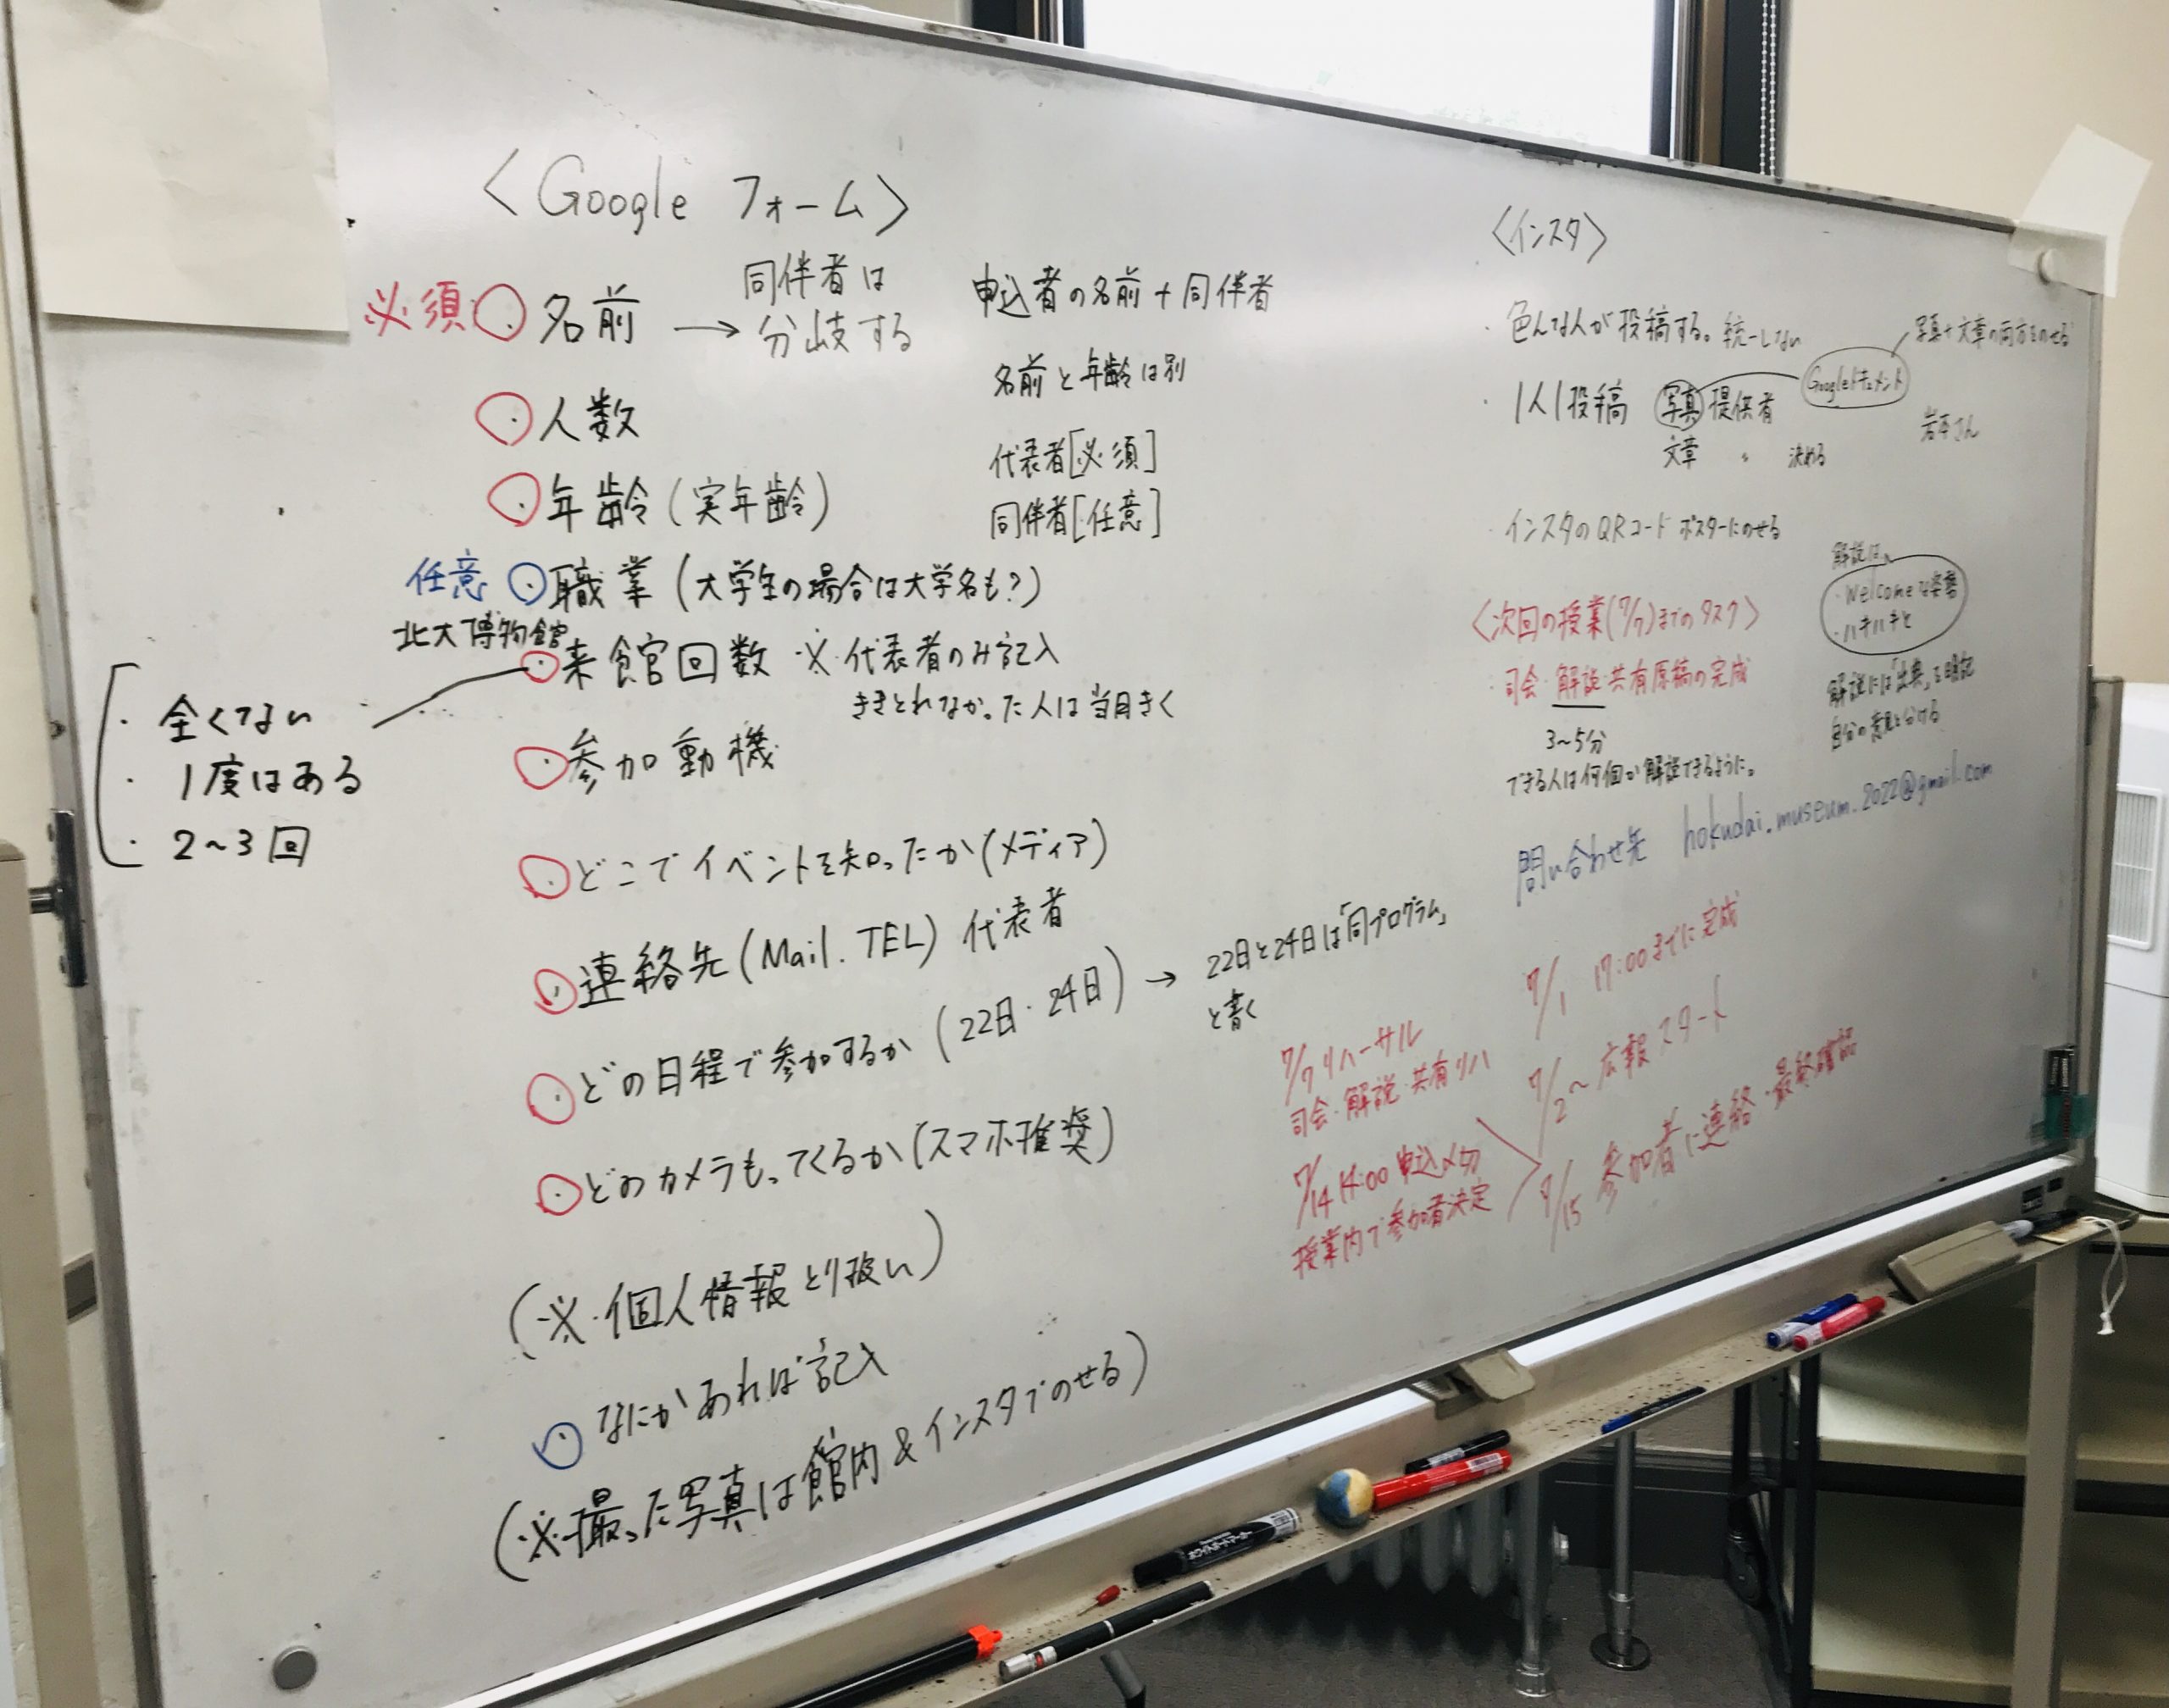 〈Google フォーム〉
必須 ・名前 → 同伴者は
分岐する
申込者の名前+同伴者
名前と年齢は別
・人数
代表者[必須]
同伴者[任意]
・年齢(実年齢)
任意 ・職業(大学生の場合は大学名も?)
北大博物館
・来館回数 ※代表者のみ記入
ききとれなかった人は当日きく
・全くない
・1度はある
・2~3回
・参加動機
・どこでイベントを知ったか(メディア)
・連絡先(Mail. TEL) 代表者
・どの日程で参加するか(22日・24日) → 22日と24日は「同プログラム」
と書く
・どのカメラもってくるか(スマホ推奨)
(※個人情報とり扱い)
・なにかあれば記入
(※撮った写真は館内&インスタでのせる)
〈インスタ〉
・色んな人が投稿する。統一しない
・1人1投稿 写真提供者
文章 〃 決める
Googleドキュメント
写真+文章の両方をのせる
・インスタのQRコード ポスターにのせる
〈次回の授業(7/7)までのタスク〉
・司会・解説・共有原稿の完成
3~5分
できる人は何個か解説できるように。
解説は、
・Welcomeな姿勢
・ハキハキと
解説には「出典」を明記
自分の意見と分ける
問い合わせ先 hokudai.museum.2022@gmail.com
7/1 17:00までに完成
7/2~広報スタート
7/7リハーサル
司会・解説・共有リハ
7/14 14:00 申込〆切
授業内で参加者決定
7/15 参加者に連絡・最終確認
ホワイトボードマーカー